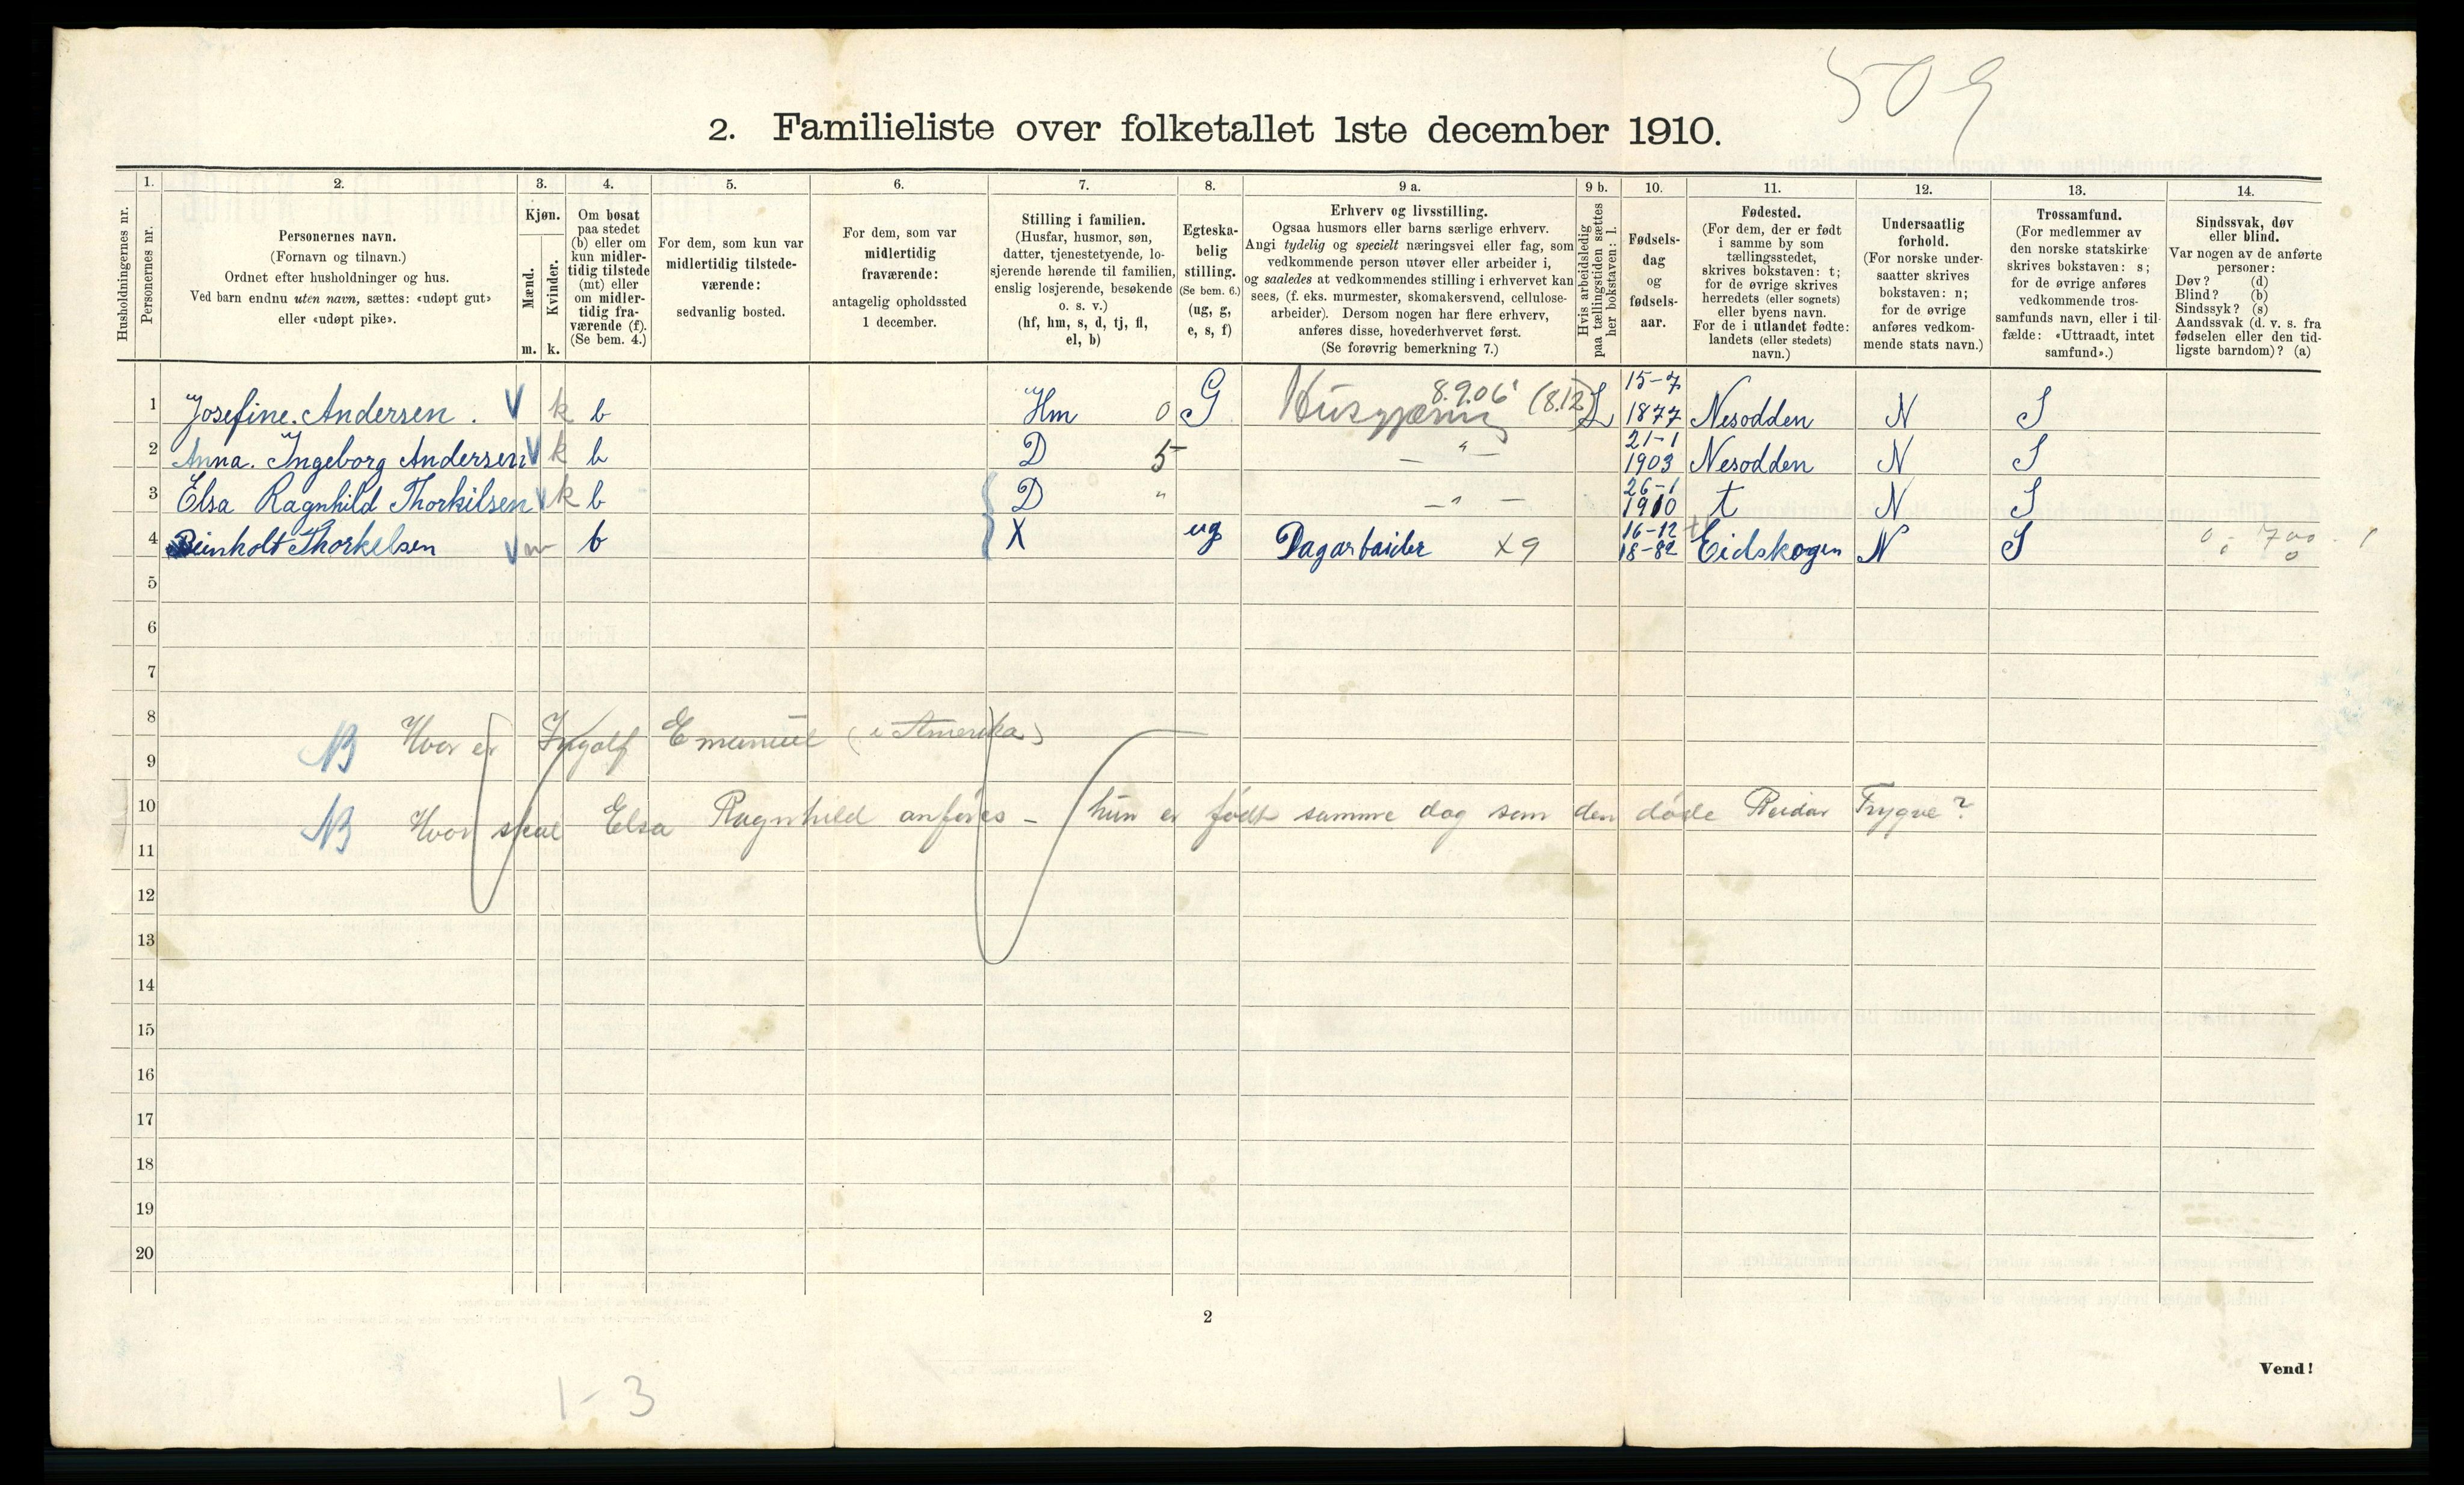 509
2. Familieliste over folketallet 1ste december 1910.
Husholdningernes nr.
1. Personernes nr.
2. Personernes navn.
(Fornavn og tilnavn.)
Ordnet efter husholdninger og hus.
Ved barn endnu uten navn, sættes: «udøpt gut»
eller «udøpt pike».
3. Kjøn.
Mænd. m.
Kvinder. k.
4. Om bosat
paa stedet
(b) eller om
kun midler-
tidig tilstede
(mt) eller
om midler-
tidig fra-
værende (f).
(Se bem. 4.)
5. For dem, som kun var
midlertidig tilstede-
værende:
sedvanlig bosted.
6. For dem, som var
midlertidig
fraværende:
antagelig opholdssted
1 december.
7. Stilling i familien.
(Husfar, husmor, søn,
datter, tjenestetyende, lo-
sjerende hørende til familien,
enslig losjerende, besøkende
o. s. v.)
(hf, hm, s, d, tj, fl,
el, b)
8. Egteska-
belig
stilling.
(Se bem. 6.)
(ug, g,
e, s, f)
9 a. Erhverv og livsstilling.
Ogsaa husmors eller barns særlige erhverv.
Angi tydelig og specielt næringsvei eller fag, som
vedkommende person utøver eller arbeider i,
og saaledes at vedkommendes stilling i erhvervet kan
sees, (f. eks. murmester, skomakersvend, cellulose-
arbeider). Dersom nogen har flere erhverv,
anføres disse, hovederhvervet først.
(Se forøvrig bemerkning 7.)
9 b. Hvis arbeidsledig
paa tællingstiden sættes
her bokstaven: l.
10. Fødsels-
dag
og
fødsels-
aar.
11. Fødested.
(For dem, der er født
i samme by som
tællingsstedet,
skrives bokstaven: t;
for de øvrige skrives
herredets (eller sognets)
eller byens navn.
For de i utlandet fødte:
landets (eller stedets)
navn.)
12. Undersaatlig
forhold.
(For norske under-
saatter skrives
bokstaven: n;
for de øvrige
anføres vedkom-
mende stats navn.)
13. Trossamfund.
(For medlemmer av
den norske statskirke
skrives bokstaven: s;
for de øvrige anføres
vedkommende tros-
samfunds navn, eller i til-
fælde: «Uttraadt, intet
samfund».)
14. Sindssvak, døv
eller blind.
Var nogen av de anførte
personer:
Døv? (d)
Blind? (b)
Sindssyk? (s)
Aandssvak (d. v. s. fra
fødselen eller den tid-
ligste barndom)? (a)
1 Josefine. Andersen. k b Hm 0 G Husgjerning 8.9.06 (8.12) L 15-7 1877 Nesodden N S
2 Anna. Ingeborg Andersen k b D 5 — " — 21-1 1903 Nesodden N S
3 Elsa Ragnhild Thorkilsen k b D " — " — 26-1 1910 t N S
4 Reinholt Thorkelsen m b X ug Dagarbeider x9 16-12 18-82 Eidskogen N S
5
6
7
8
NB Hvor er Ingolf Emanuel (i Amerika)
9
10
NB Hvor skal Elsa Ragnhild anføres - hun er født samme dag som den døde Reidar Trygve?
11
12
13
14
15
16
17
18
19
20
2
Vend!
1-3